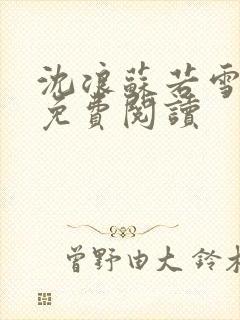 沈浪蘇若雪
免費閱讀
曾野由大 鈴木